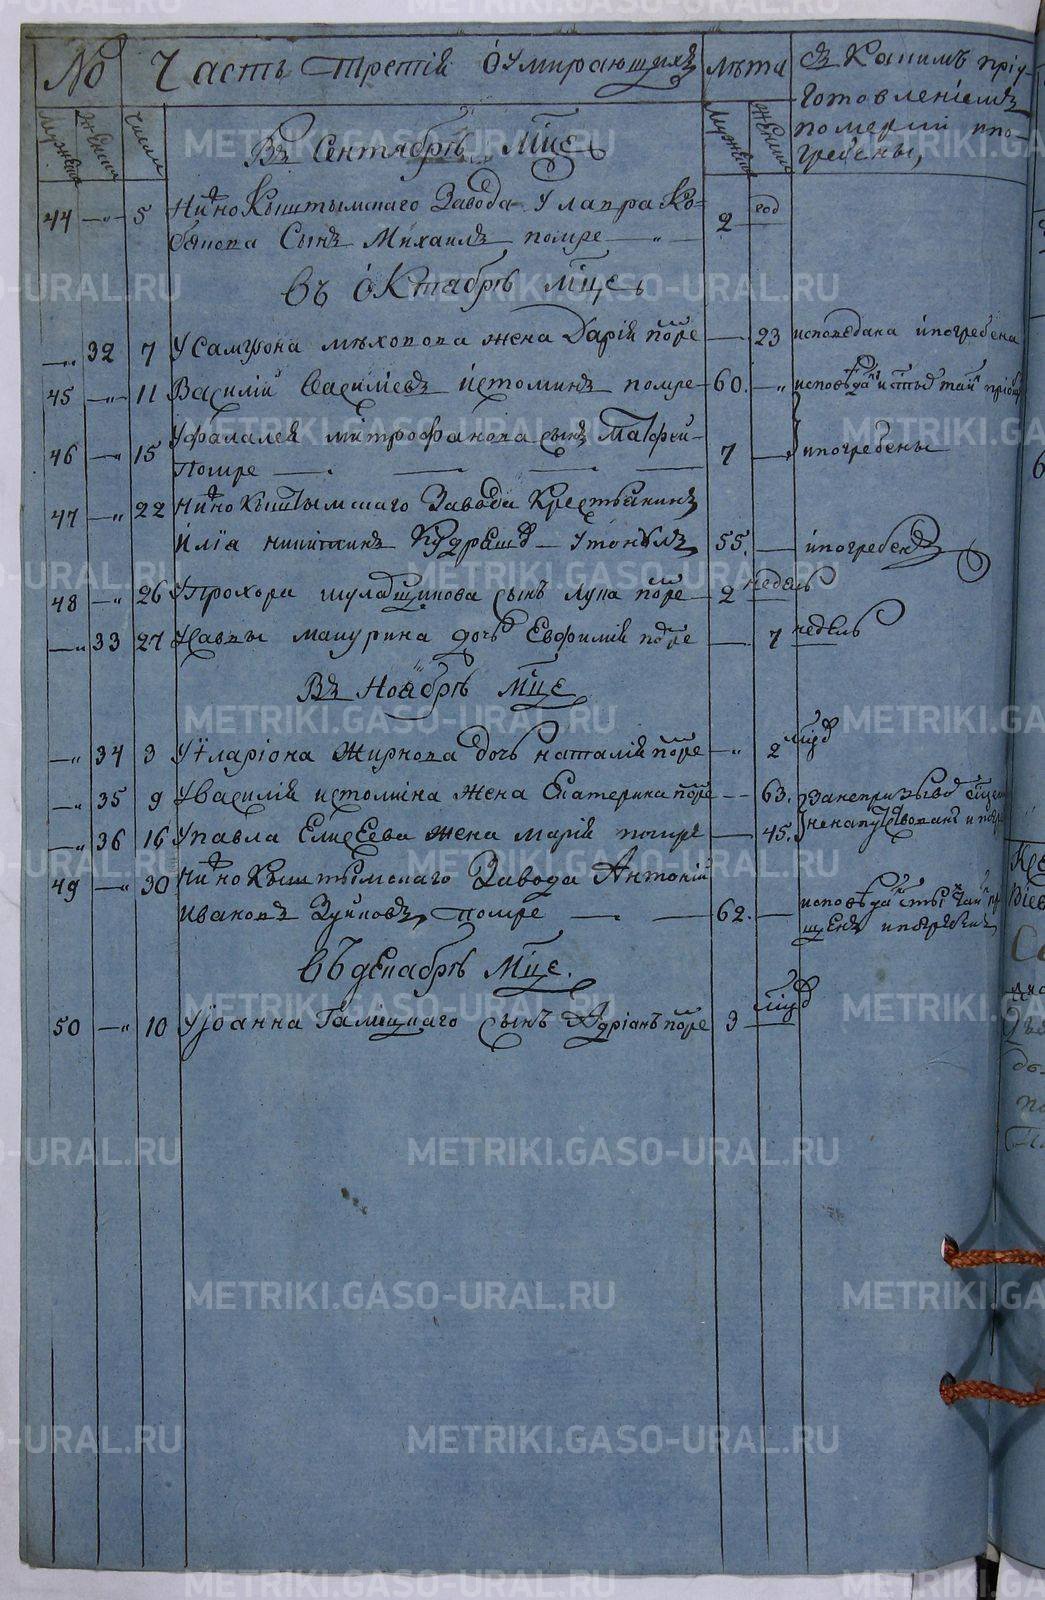 № Часть третія о умирающихъ лѣта Съ какимъ пріу-
готовленіемъ
померли и по-
гребены,
Мужеска Женска число Мужеска Женска
Въ Сентябрѣ мцѣ
44 —„ 5 Нижнокыштымскаго Завода У Лавра Ко-
2 год
сынъ Михаилъ помре —„—
въ октябрѣ мцѣ
—„ 32 7 У Самуона мѣхонова жена Дарія помре — 23 исповѣдана и погребена
45 —„ 11 Василій Василіевъ истоминъ помре 60. —„
46 —„ 15 У фалалея митрофанова сынъ Матфей
помре — — — — 7 — и погребены
47 —„ 22 Нижнокыштымскаго Завода Крестьянинъ
Иліа никитинъ Кудряшовъ утонулъ 55. — и погребенъ
48 —„ 26 У Прохора шулащипова сынъ лука помре 2 недѣль
—„ 33 27 У Саввы мапурина дочь Евфимія помре — 7 недѣль
Въ Ноябрѣ мцѣ
—„ 34 3 У Иларіона Жирнова дочь наталія помре —„ 2 мцъ
—„ 35 9 У василія истомина жена Екатерина помре — 63. За непризывъ
—„ 36 16 У павла Елисеева жена марія помре — 45.
49 —„ 30 Нижнокыштымскаго Завода Антоній
Ивановъ Зуйковъ, помре — — 62. —
и погребенъ
въ декабрѣ мцѣ.
50 —„ 10 У Іоанна Галицкаго сынъ Адріанъ помре 3 мцъ
METRIKI.GASO-URAL.RU